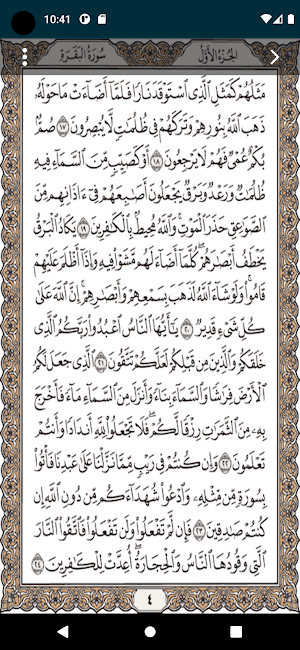 10:41
الجزء الأول سورة البقرة
مَثَلُهُمْ كَمَثَلِ ٱلَّذِى ٱسْتَوْقَدَ نَارًا فَلَمَّآ أَضَآءَتْ مَا حَوْلَهُۥ
ذَهَبَ ٱللَّهُ بِنُورِهِمْ وَتَرَكَهُمْ فِى ظُلُمَٰتٍ لَّا يُبْصِرُونَ ١٧ صُمٌّۢ
بُكْمٌ عُمْىٌ فَهُمْ لَا يَرْجِعُونَ ١٨ أَوْ كَصَيِّبٍ مِّنَ ٱلسَّمَآءِ فِيهِ
ظُلُمَٰتٌ وَرَعْدٌ وَبَرْقٌ يَجْعَلُونَ أَصَٰبِعَهُمْ فِىٓ ءَاذَانِهِم مِّنَ
ٱلصَّوَٰعِقِ حَذَرَ ٱلْمَوْتِ ۚ وَٱللَّهُ مُحِيطٌۢ بِٱلْكَٰفِرِينَ ١٩ يَكَادُ ٱلْبَرْقُ
يَخْطَفُ أَبْصَٰرَهُمْ ۖ كُلَّمَآ أَضَآءَ لَهُم مَّشَوْا۟ فِيهِ وَإِذَآ أَظْلَمَ عَلَيْهِمْ
قَامُوا۟ ۚ وَلَوْ شَآءَ ٱللَّهُ لَذَهَبَ بِسَمْعِهِمْ وَأَبْصَٰرِهِمْ ۚ إِنَّ ٱللَّهَ عَلَىٰ
كُلِّ شَىْءٍ قَدِيرٌ ٢٠ يَٰٓأَيُّهَا ٱلنَّاسُ ٱعْبُدُوا۟ رَبَّكُمُ ٱلَّذِى
خَلَقَكُمْ وَٱلَّذِينَ مِن قَبْلِكُمْ لَعَلَّكُمْ تَتَّقُونَ ٢١ ٱلَّذِى جَعَلَ لَكُمُ
ٱلْأَرْضَ فِرَٰشًا وَٱلسَّمَآءَ بِنَآءً وَأَنزَلَ مِنَ ٱلسَّمَآءِ مَآءً فَأَخْرَجَ
بِهِۦ مِنَ ٱلثَّمَرَٰتِ رِزْقًا لَّكُمْ ۖ فَلَا تَجْعَلُوا۟ لِلَّهِ أَندَادًا وَأَنتُمْ
تَعْلَمُونَ ٢٢ وَإِن كُنتُمْ فِى رَيْبٍ مِّمَّا نَزَّلْنَا عَلَىٰ عَبْدِنَا فَأْتُوا۟
بِسُورَةٍ مِّن مِّثْلِهِۦ وَٱدْعُوا۟ شُهَدَآءَكُم مِّن دُونِ ٱللَّهِ إِن
كُنتُمْ صَٰدِقِينَ ٢٣ فَإِن لَّمْ تَفْعَلُوا۟ وَلَن تَفْعَلُوا۟ فَٱتَّقُوا۟ ٱلنَّارَ
ٱلَّتِى وَقُودُهَا ٱلنَّاسُ وَٱلْحِجَارَةُ ۖ أُعِدَّتْ لِلْكَٰفِرِينَ ٢٤
٤